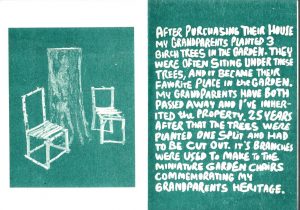 AFTER PURCHASING THEIR HOUSE
MY GRANDPARENTS PLANTED 3
BIRCH TREES IN THE GARDEN. THEY
WERE OFTEN SITING UNDER THESE
TREES, AND IT BECAME THEIR
FAVORITE PLACE IN THE GARDEN.
MY GRANDPARENTS HAVE BOTH
PASSED AWAY AND I'VE INHER-
ITED THE PROPERTY. 25 YEARS
AFTER THAT THE TREES WERE
PLANTED ONE SPLIT AND HAD
TO BE CUT OUT. IT'S BRANCHES
WERE USED TO MAKE TO THE
MINIATURE GARDEN CHAIRS
COMMEMORATING MY
GRANDPARENTS HERITAGE.